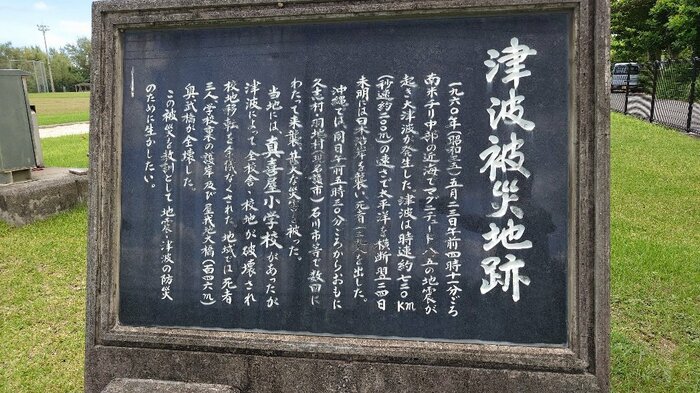 津波被災地跡
一九六〇年(昭和三五)五月二三日午前四時十一分ごろ
南米チリ中部の近海でマグニチュード八・五の地震が
起き大津波が発生した。津波は時速約七二〇km
(秒速約二〇〇m)の速さで太平洋を横断翌二四日
未明には日本沿岸を襲い死者 を出した。
沖縄では、同日午前五時三〇分ごろからおもに
久志村・羽地村(現名護市)石川市等で数回に
わたって来襲、甚大な災害を被った。
当地には、真喜屋小学校があったが
津波によって全校舎・校地が破壊され
校地移転を余儀なくされた。地域では死者
三人、学校東の護岸及び屋我地大橋(百四六m)
奥武橋が全壊した。
この被災を教訓として地震・津波の防災
のために生かしたい。